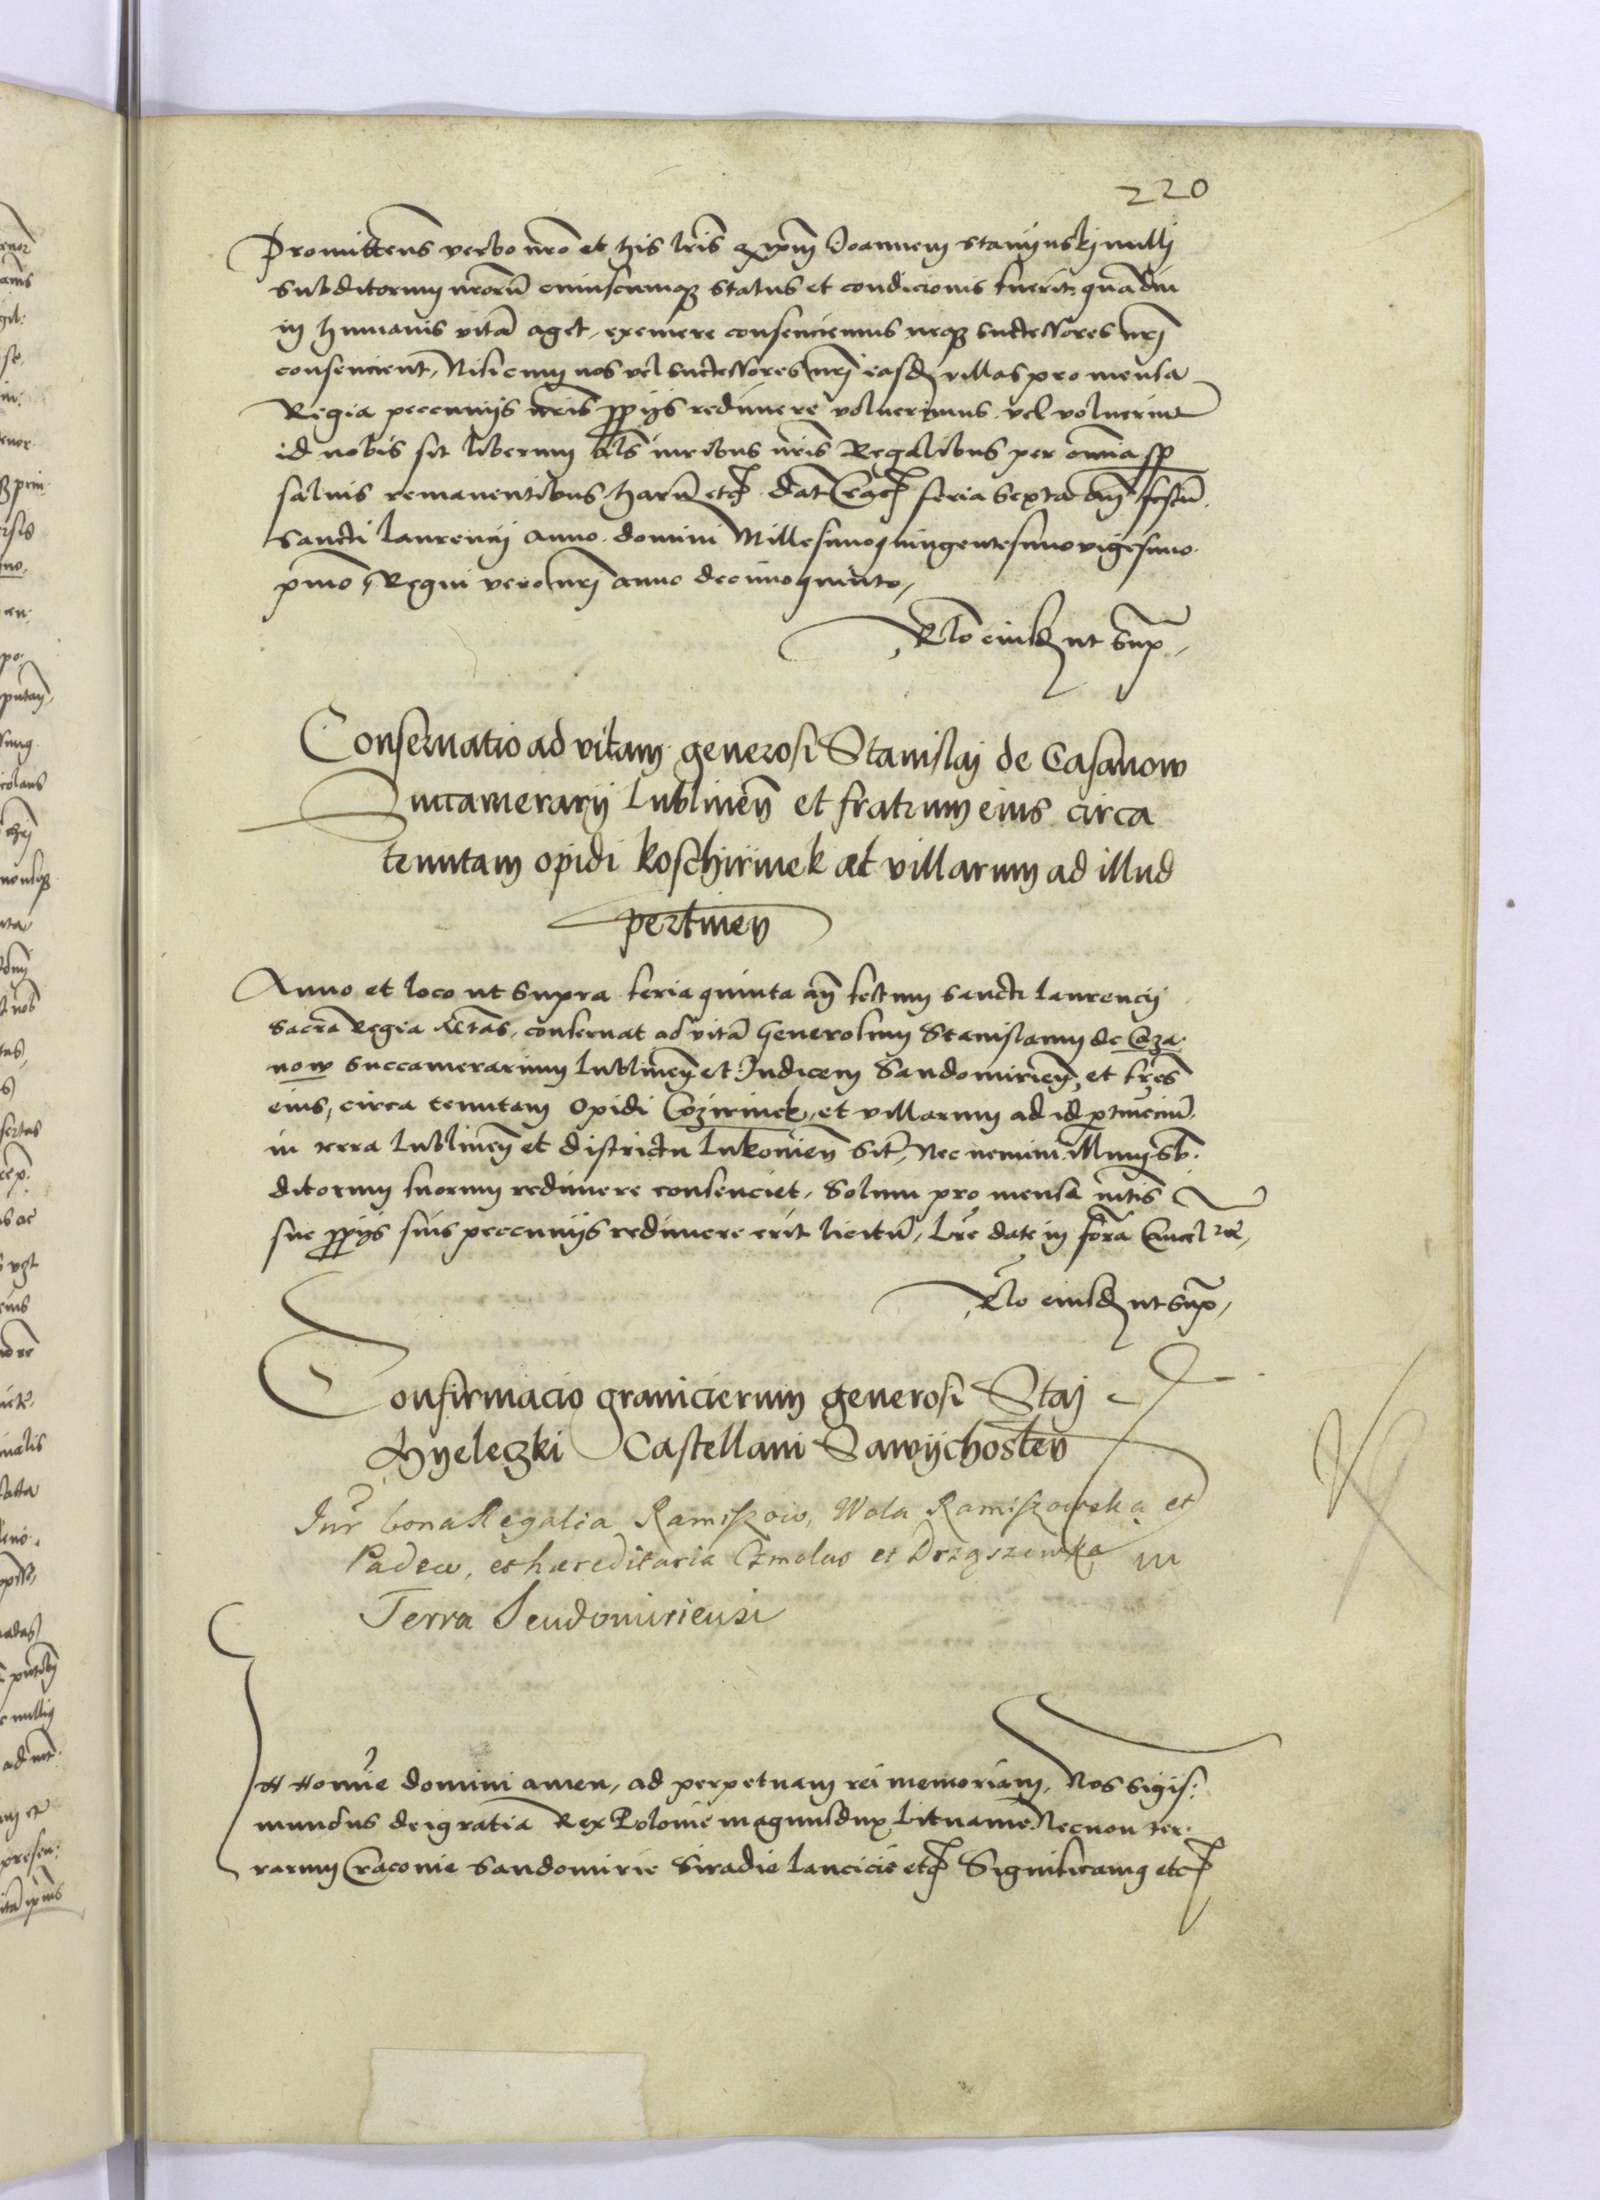 220
Promittens verbo nro et his lris q ipm Joannem Stanijnskj nullj
subditorum nrorū cuiuscumqz status et condicionis fuerit quādiu
in humanis vitā aget, exemere consenciemus neqz successores nrj
consencient, Nisi cum nos vel successores nrj easdē villas pro mensa
Regia peccunijs nris ppijs redimere voluerimus vel voluerint
id nobis sit liberum Alijs iuribus nris Regalibus per omnia sp
saluis remanentibus harū etc Dat Crac feria Sexta an festū
Sancti Laurencij Anno domini Millesimo quingentesimo vigesimo
pmo Regni vero nrj anno decimoquinto,
Rlo eiusdē ut Sup,
Conseruatio ad vitam generosi Stanislaj de Casanow
Succamerarij Lublineñ et fratrum eius circa
tenutam opidi Koschirinek et villarum ad illud
pertineñ
Anno et loco ut supra feria quinta añ festum sancti Laurencij
Sacra Regia Mtas, conseruat ad vitā Generosum Stanislaum de Caza
now Succamerarium Lublineñ et Judicem Sandomirieñ, et frēs
eius, circa tenutam Opidi Cozirinek, et villarum ad id ptinenciū
in terra Lublineñ et districtu Lukovieñ Sit, Nec nemini illum sb
ditorum suorum redimere consenciet, Solum pro mensa mtis
sue ppijs suis peccunijs redimere erit licitū, Lre date in forā Cancel
Rlo eiusdē ut Sup,
Confirmacio granicierum generosi Staj
Myeleczki Castellani Zawijchosteñ
Int' bona Regalia Ramiszow, Wola Ramiszowska et
Padew, et haereditaria Czmolas et Drzgszowka in
Terra Sendomiriensi
In Nomine domini amen, ad perpetuam rei memoriam, Nos Sigis:
mundus dei gratia Rex Polonie magnus dux Lituanie Necnon ter
rarum Craconie Sandomirie Siradie Lancicie etc Significamus etc